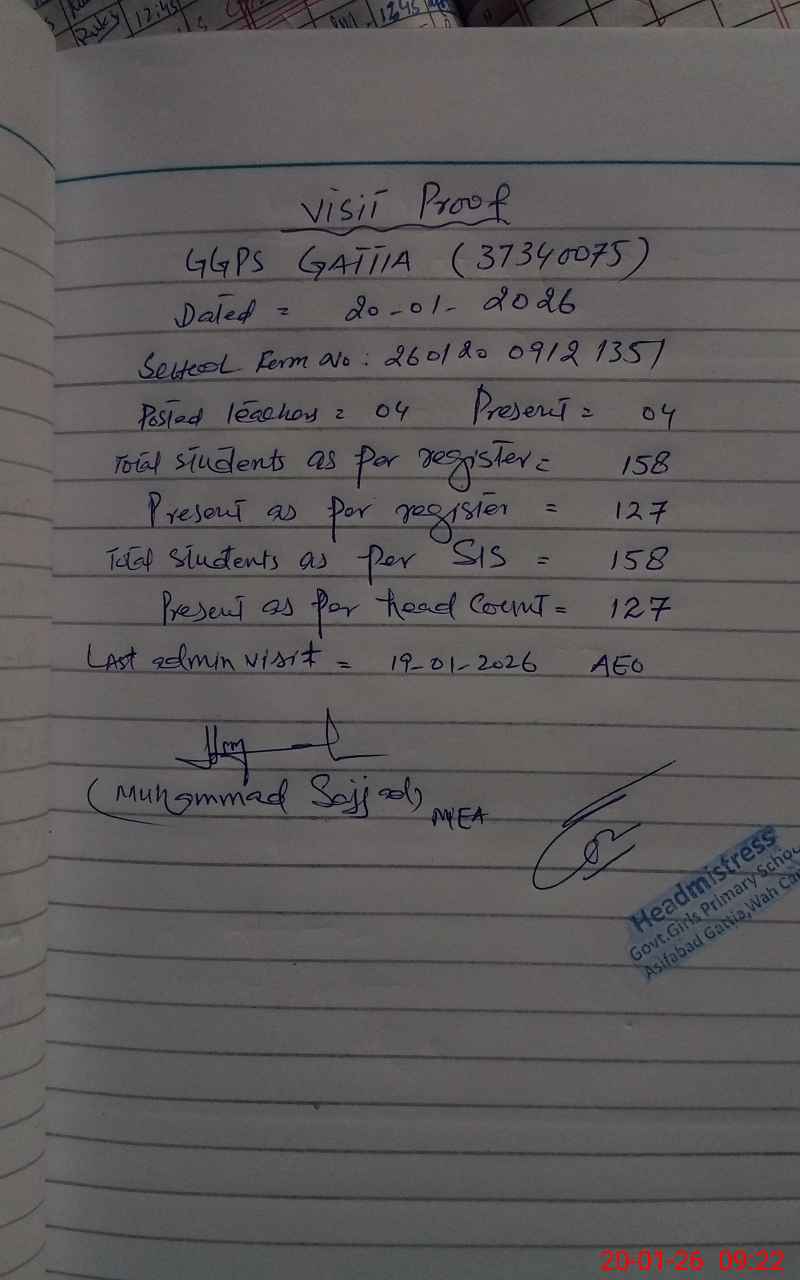 Rules 12:45
12:45
Visit Proof
GGPS GATTIA (37340075)
Dated = 20-01-2026
School Form No: 260120 0912 1351
Posted Teachers = 04 Present = 04
Total students as per register = 158
Present as per register = 127
Total students as per SIS = 158
Present as per head count = 127
Last admin visit = 19-01-2026 AEO
(Muhammad Sajjad)
MEA
Headmistress
Govt.Girls Primary
Asifabad Gattia, Wah
20-01-26 09:22